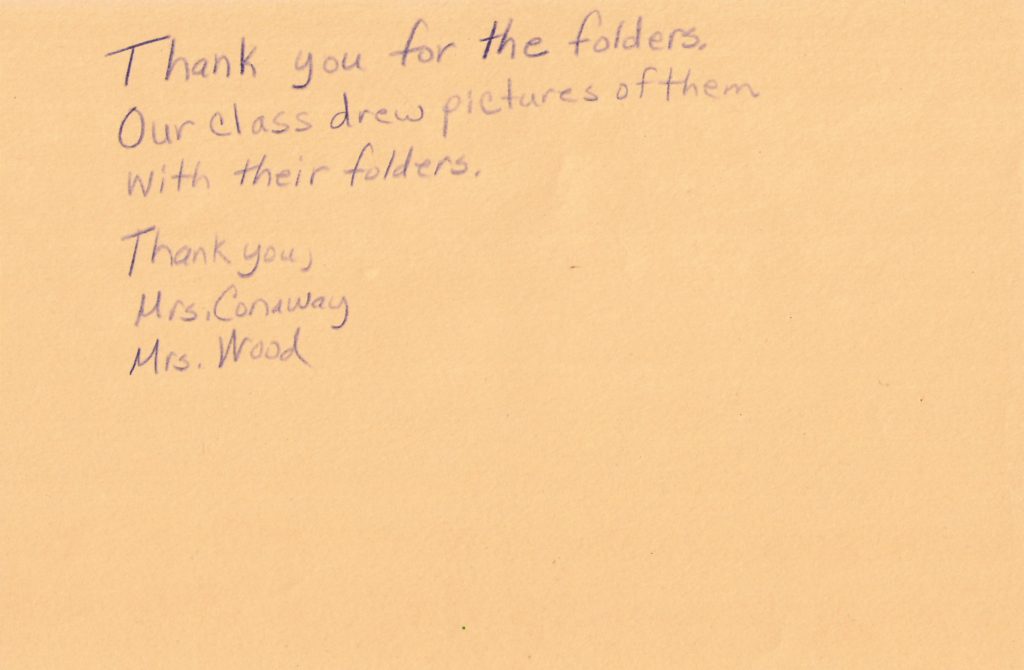 Thank you for the folders.
Our class drew pictures of them
with their folders.
Thank you,
Mrs. Conaway
Mrs. Wood